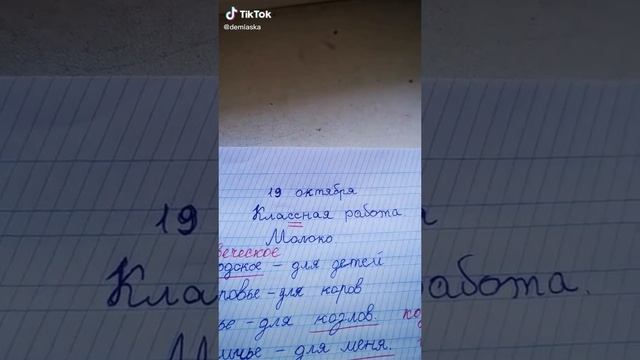 TikTok
@demiaska
19 октября
Классная работа
Молоко
ческое
одское - для детей
ровье - для коров
ье - для козлов.
ичье - для меня.